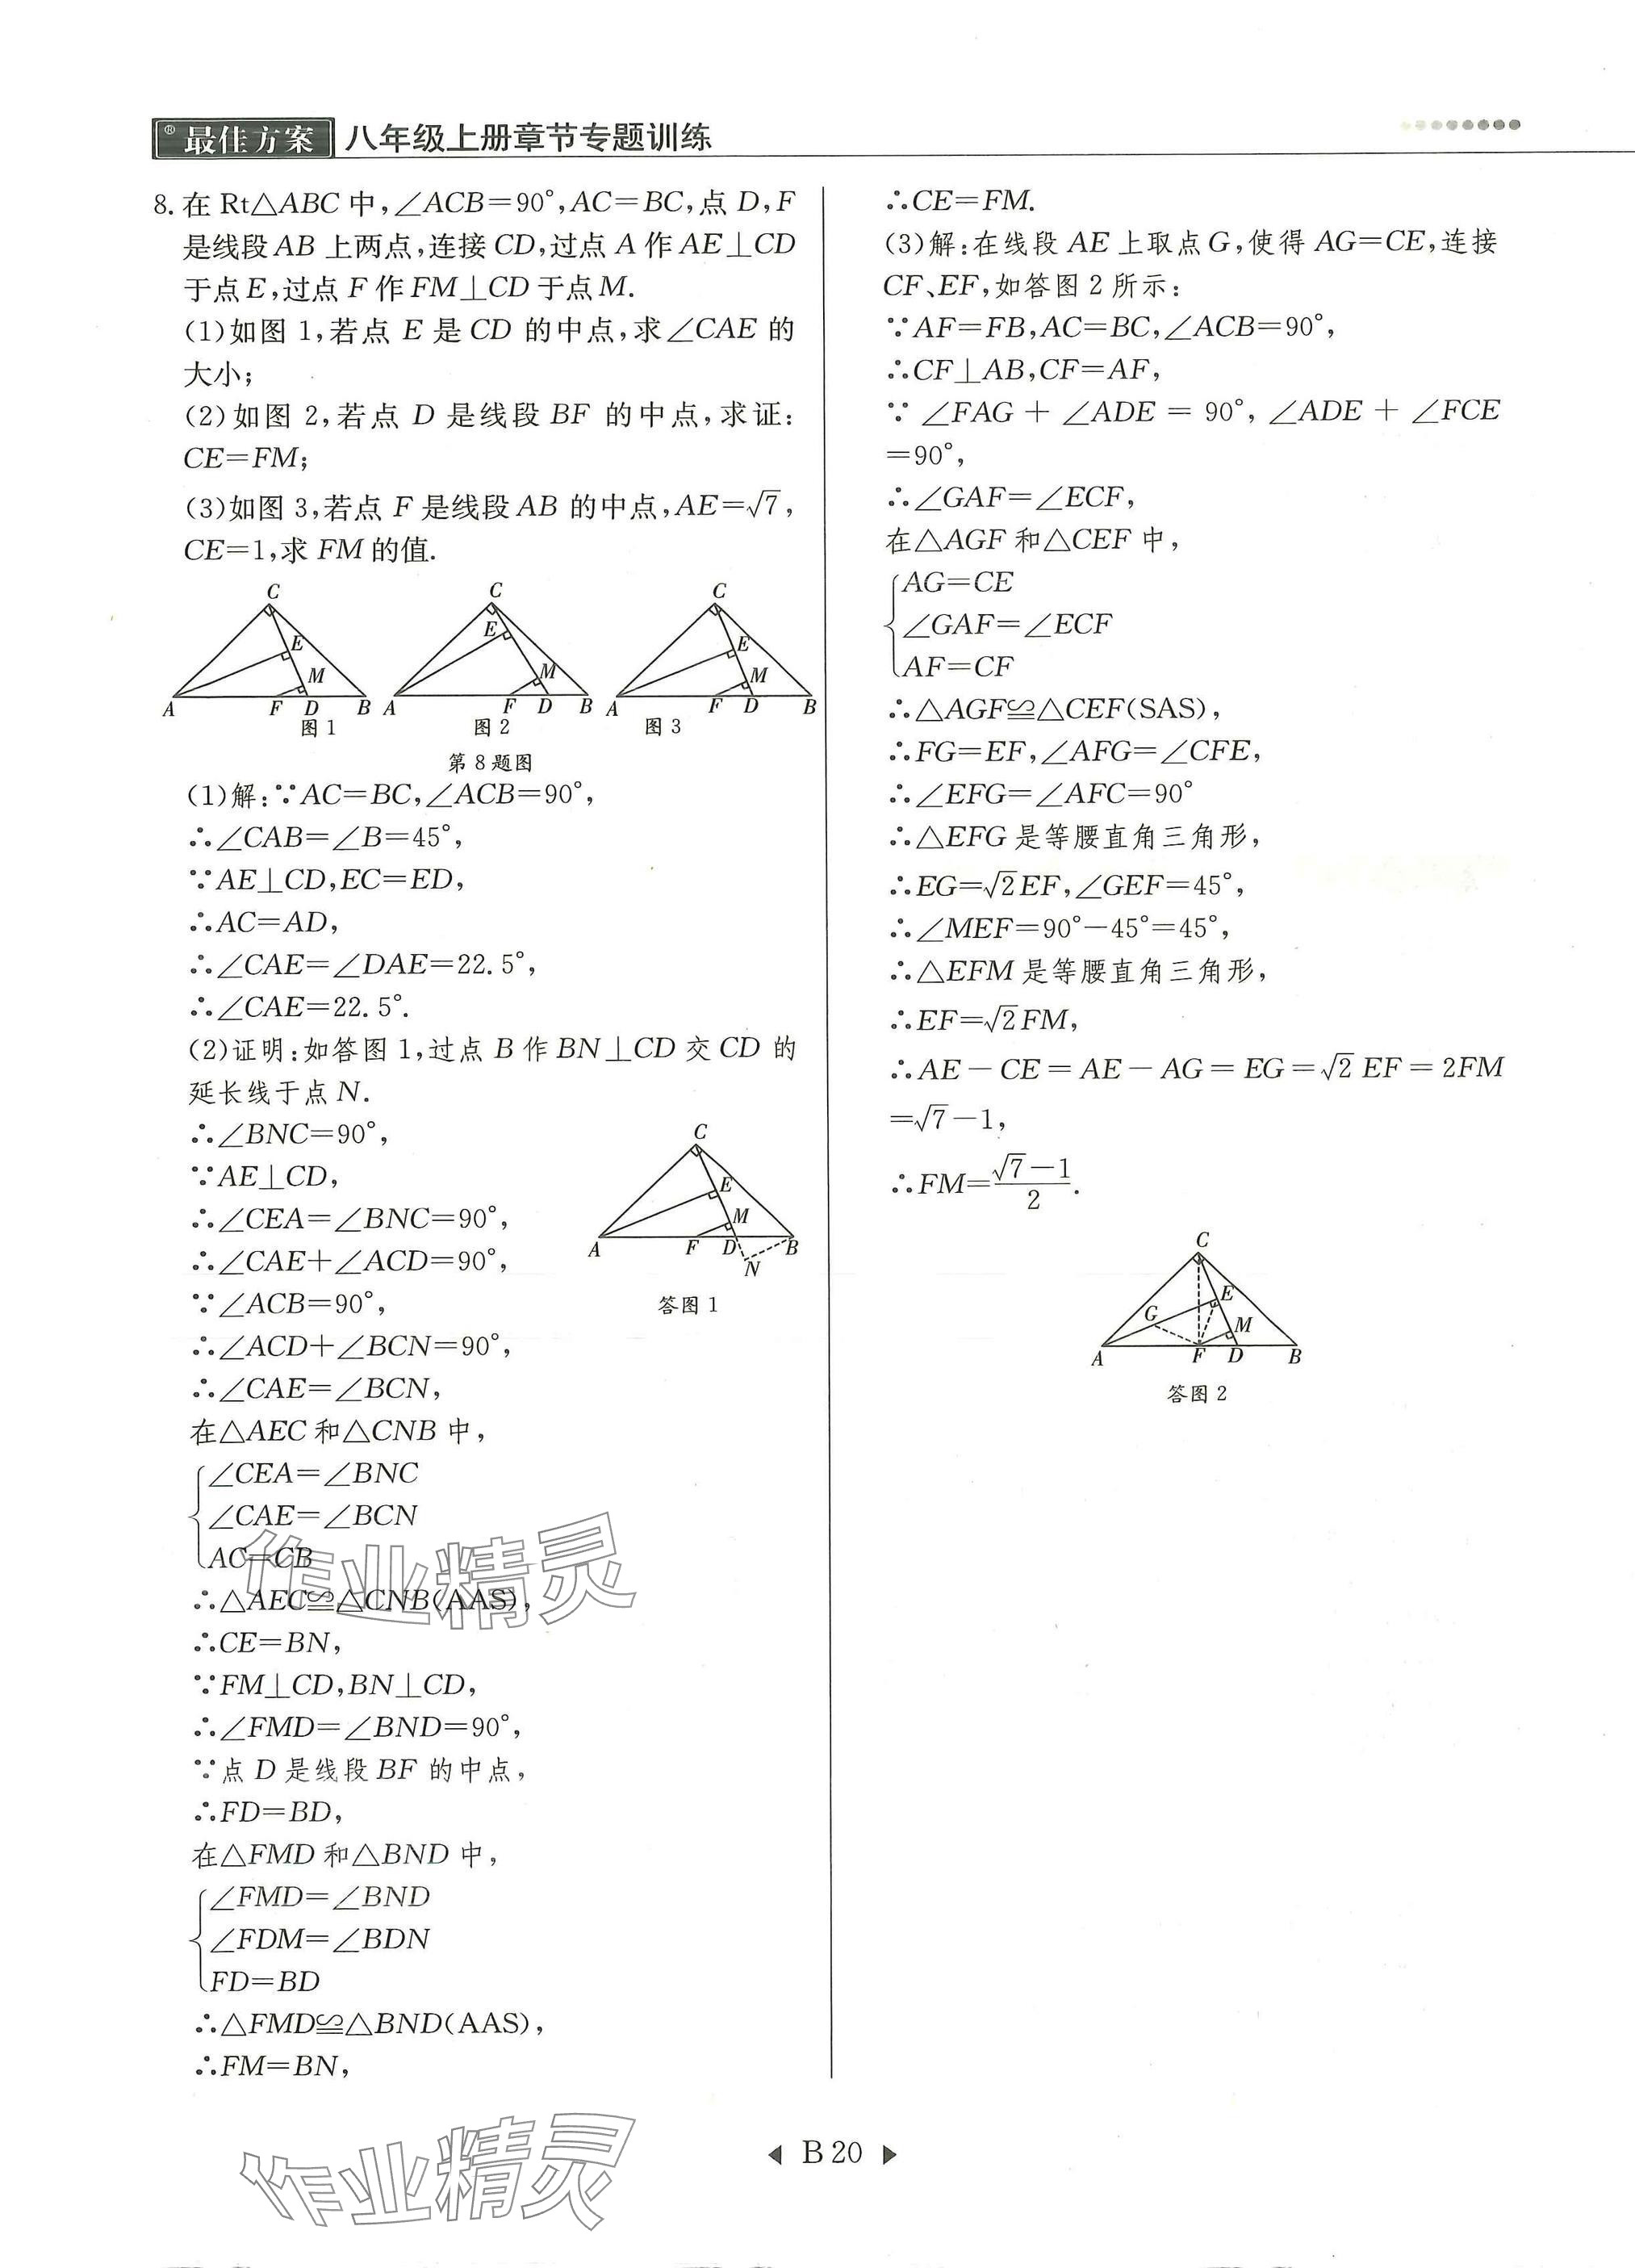 最佳方案® 八年级上册章节专题训练
8. 在 Rt△ABC 中,∠ACB=90°,AC=BC,点 D,F
是线段 AB 上两点,连接 CD,过点 A 作 AE⊥CD
于点 E,过点 F 作 FM⊥CD 于点 M.
(1)如图 1,若点 E 是 CD 的中点,求∠CAE 的
大小;
(2)如图 2,若点 D 是线段 BF 的中点,求证:
CE=FM;
(3)如图 3,若点 F 是线段 AB 的中点,AE=√7,
CE=1,求 FM 的值.
C E M A F D B 图 1
C E M A F D B 图 2
C E M A F D B 图 3
第 8 题图
(1)解:∵AC=BC,∠ACB=90°,
∴∠CAB=∠B=45°,
∵AE⊥CD,EC=ED,
∴AC=AD,
∴∠CAE=∠DAE=22.5°,
∴∠CAE=22.5°.
(2)证明:如答图 1,过点 B 作 BN⊥CD 交 CD 的
延长线于点 N.
∴∠BNC=90°,
∵AE⊥CD,
∴∠CEA=∠BNC=90°,
∴∠CAE+∠ACD=90°,
∵∠ACB=90°,
∴∠ACD+∠BCN=90°,
∴∠CAE=∠BCN,
C E M A F D B N
答图 1
在△AEC 和△CNB 中,
∠CEA=∠BNC
∠CAE=∠BCN
AC=CB
∴△AEC≌△CNB(AAS),
∴CE=BN,
∵FM⊥CD,BN⊥CD,
∴∠FMD=∠BND=90°,
∵点 D 是线段 BF 的中点,
∴FD=BD,
在△FMD 和△BND 中,
∠FMD=∠BND
∠FDM=∠BDN
FD=BD
∴△FMD≌△BND(AAS),
∴FM=BN,
∴CE=FM.
(3)解:在线段 AE 上取点 G,使得 AG=CE,连接
CF、EF,如答图 2 所示:
∵AF=FB,AC=BC,∠ACB=90°,
∴CF⊥AB,CF=AF,
∵∠FAG+∠ADE=90°,∠ADE+∠FCE
=90°,
∴∠GAF=∠ECF,
在△AGF 和△CEF 中,
AG=CE
∠GAF=∠ECF
AF=CF
∴△AGF≌△CEF(SAS),
∴FG=EF,∠AFG=∠CFE,
∴∠EFG=∠AFC=90°
∴△EFG 是等腰直角三角形,
∴EG=√2EF,∠GEF=45°,
∴∠MEF=90°-45°=45°,
∴△EFM 是等腰直角三角形,
∴EF=√2FM,
∴AE-CE=AE-AG=EG=√2EF=2FM
=√7-1,
∴FM=(√7-1)/2.
C G E M A F D B
答图 2
作业精灵
作业精灵
◀ B 20 ▶